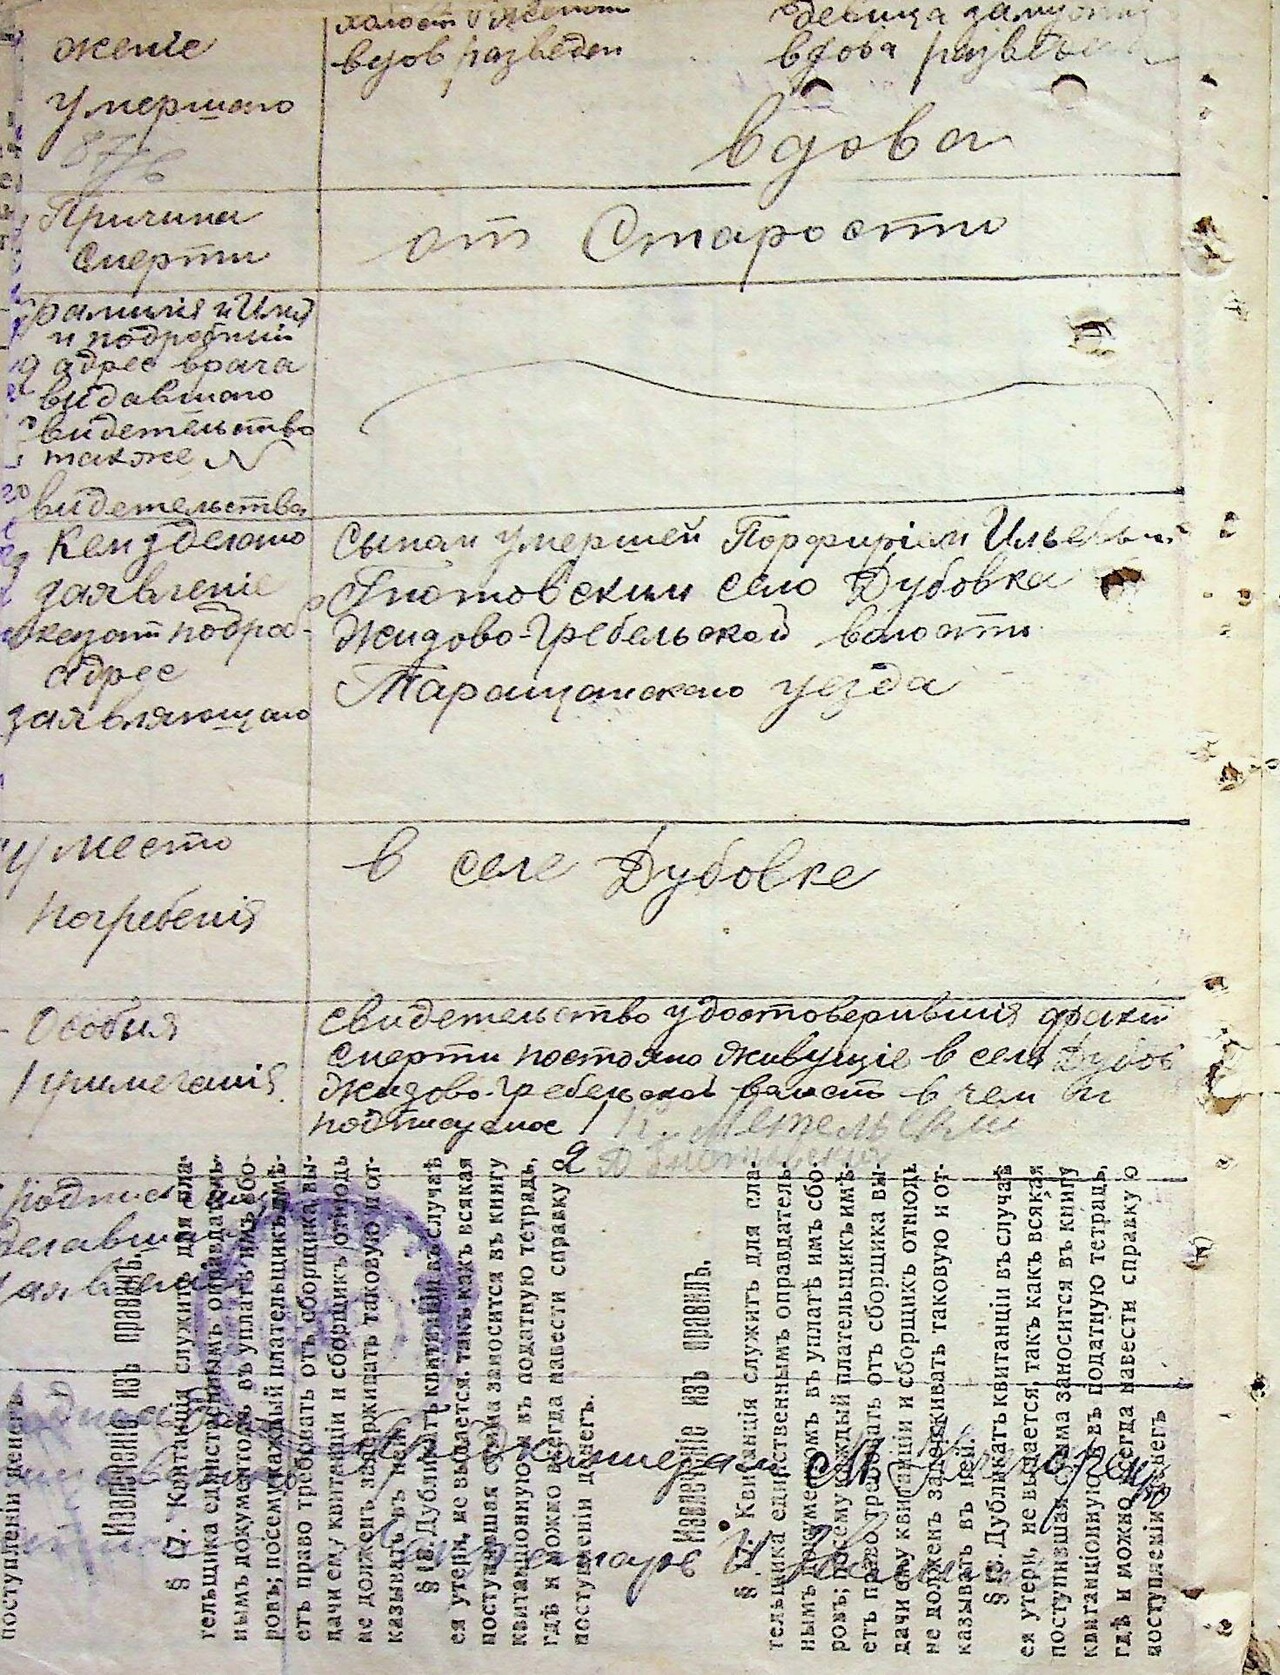 женіе
холост женат
вдов разведен
девица замужня
вдова разведена
умершаго
вдова
Причина
смерти
от Старости
Фамилія и Имя
и подробний
адрес врача
видавшаго
свидетельство
также №
свидетельства
Кем зделано
заявленіе
указат подроб-
адрес
заявляющаго
Сыном умершей Порфиріем Ильевым
село Дубовка
Жидово-Гребельской волости
Таращанскаго уезда
место
погребенія
в селе Дубовке
Особыя
примечанія
свидетельство удостоверившія факт
смерти постояно живущіе в селе Дубов
Жидово-Гребельской волост в чем и
подписуемся 1
2
Подпись
делавшаго
заявленіе
Секретарь
поступленіи денегъ
Извлеченіе изъ правилъ.
§ 17. Квитанція служитъ для пла-
тельщика единственнымъ оправдатель-
нымъ документомъ въ уплатѣ имъ сбо-
ровъ; посему каждый плательщикъ имѣ-
етъ право требовать отъ сборщика вы-
дачи ему квитанціи и сборщикъ отнюдь
не долженъ задерживать таковую и от-
казывать въ ней.
§ 18. Дубликатъ квитанціи въ случаѣ
ея утери, не выдается, такъ какъ всякая
поступившая сумма заносится въ книгу
квитанціонную и въ податную тетрадь,
гдѣ и можно всегда навести справку о
поступленіи денегъ.
Извлеченіе изъ правилъ.
§ 17. Квитанція служитъ для пла-
тельщика единственнымъ оправдатель-
нымъ документомъ въ уплатѣ имъ сбо-
ровъ; посему каждый плательщикъ имѣ-
етъ право требовать отъ сборщика вы-
дачи ему квитанціи и сборщикъ отнюдь
не долженъ задерживать таковую и от-
казывать въ ней.
§ 18. Дубликатъ квитанціи въ случаѣ
ея утери, не выдается, такъ какъ всякая
поступившая сумма заносится въ книгу
квитанціонную и въ податную тетрадь,
гдѣ и можно всегда навести справку о
поступленіи денегъ